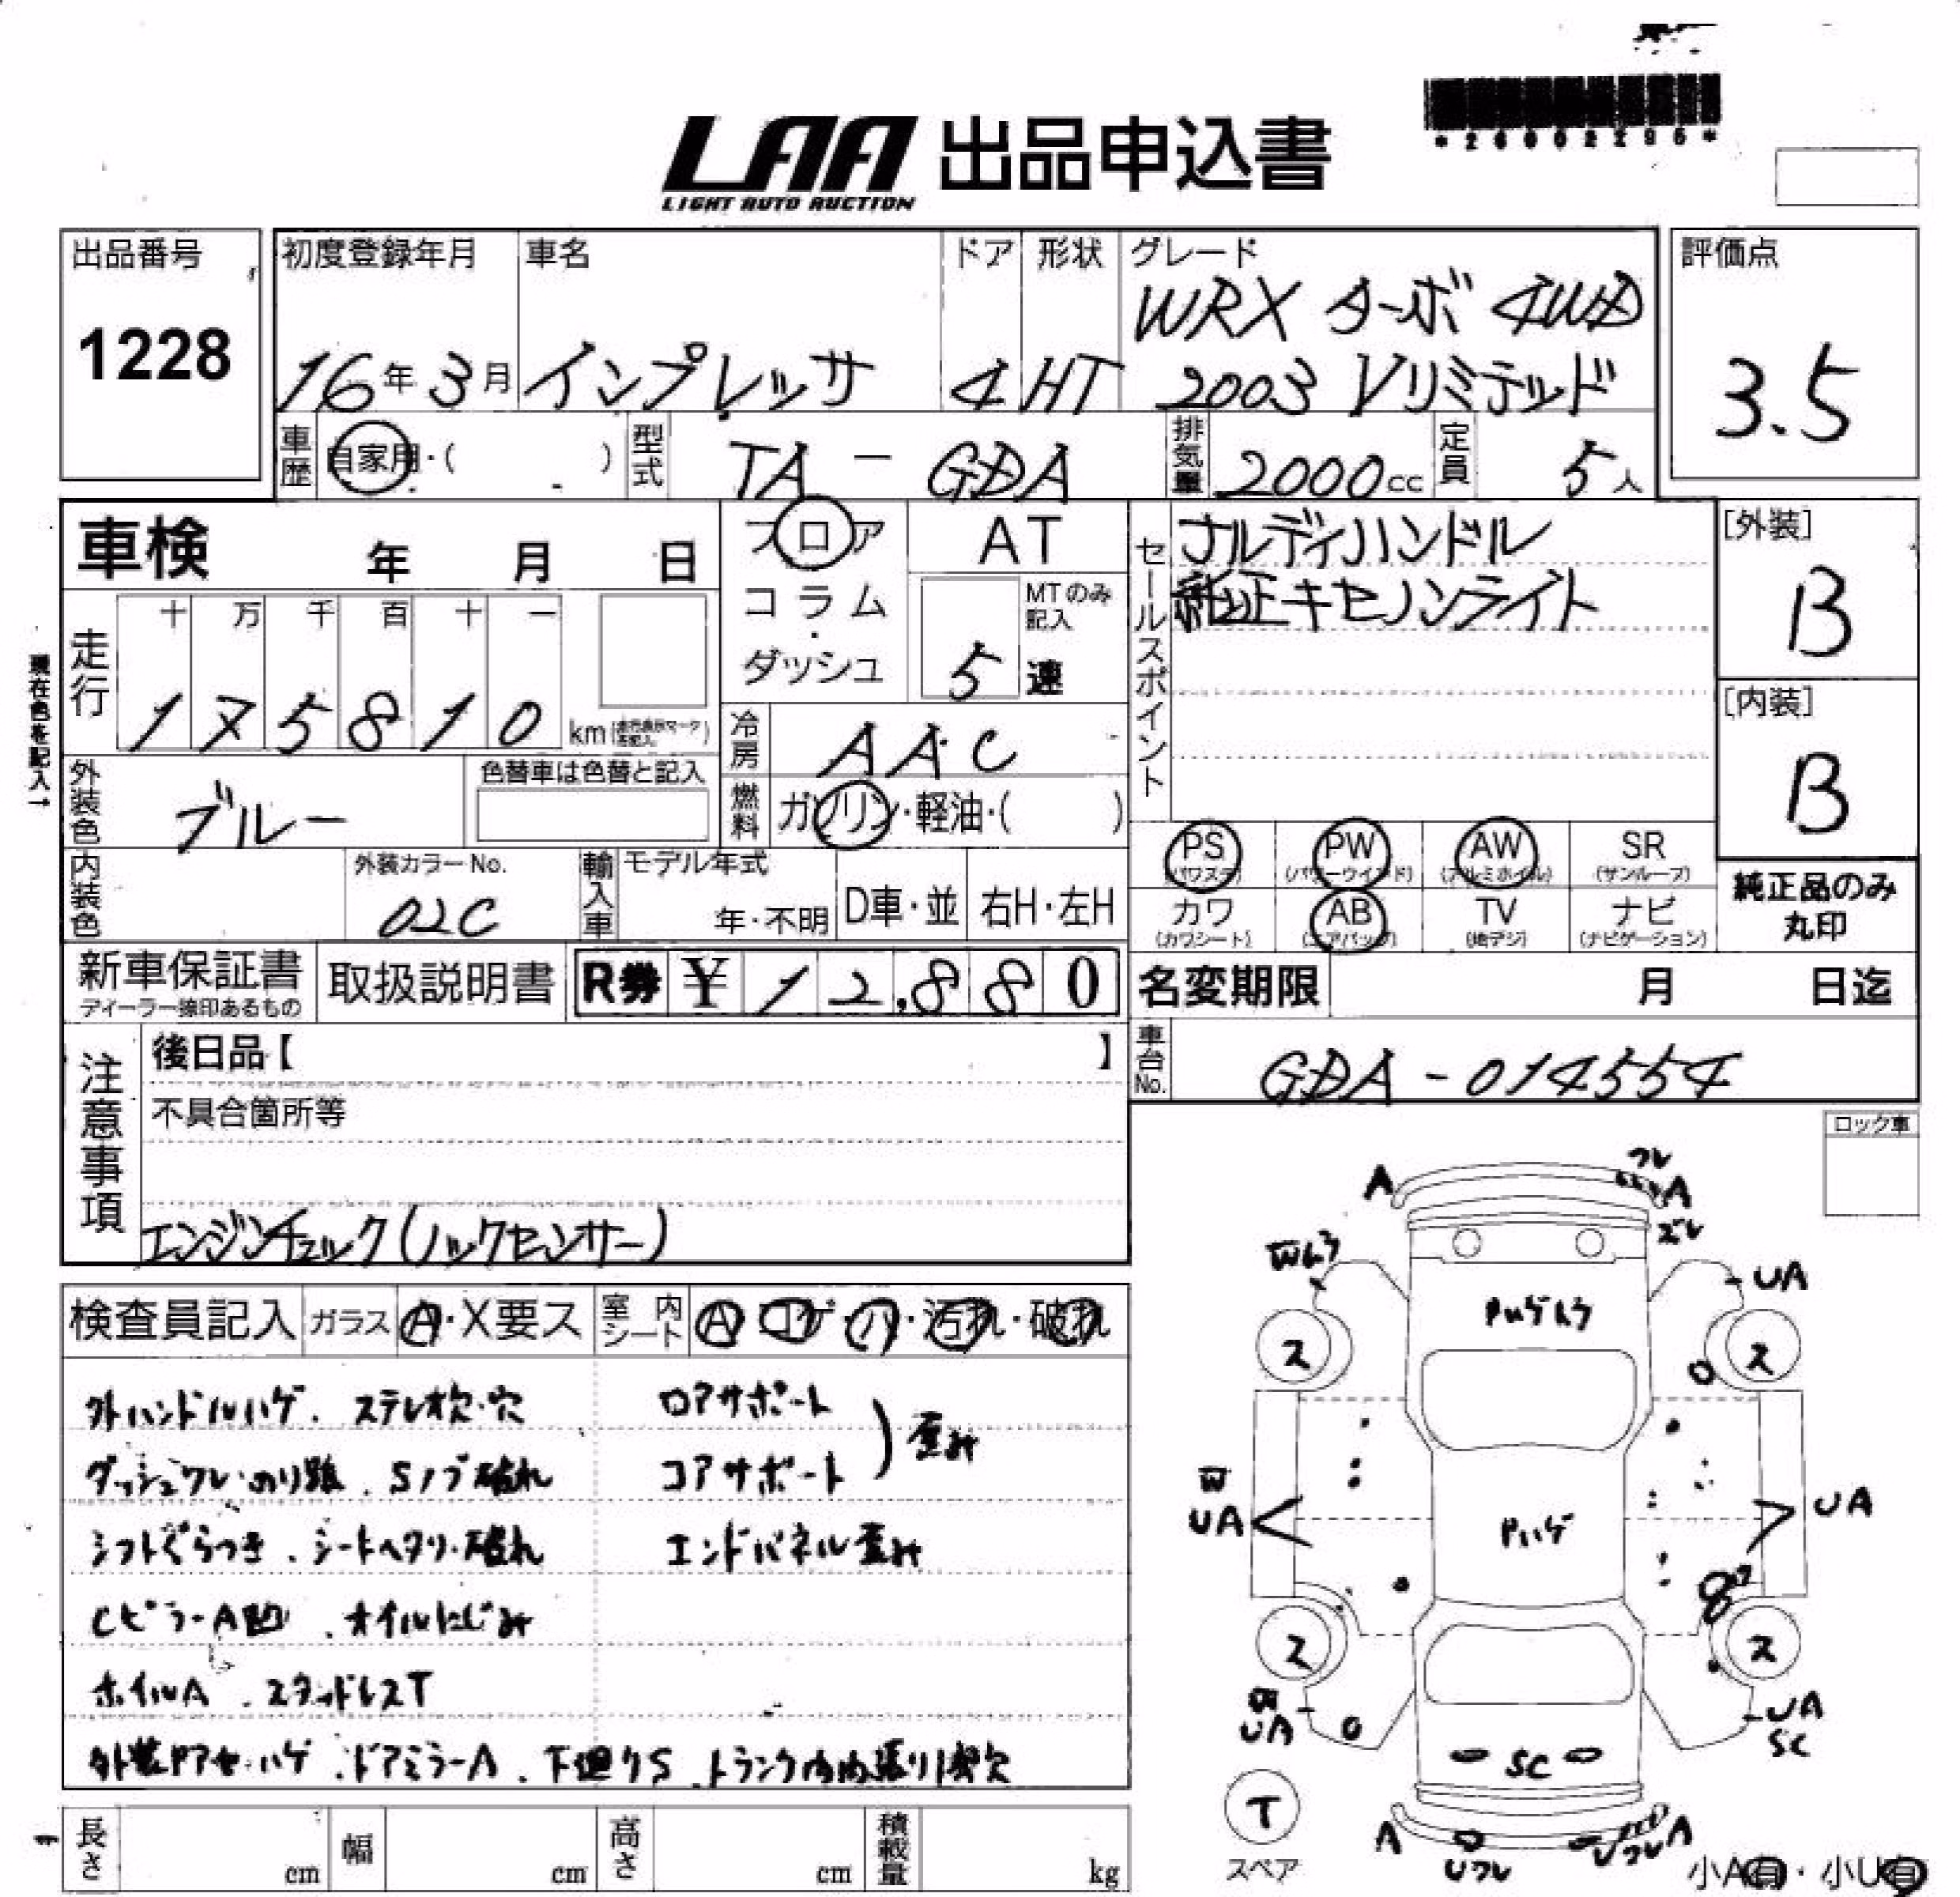 LAA 出品申込書
LIGHT AUTO AUCTION
出品番号
1228
初度登録年月
16年3月
車名
インプレッサ
ドア
4
形状
HT
グレード
WRX ターボ 4WD
2003 Vリミテッド
評価点
3.5
車歴
自家用・( )
型式
TA - GDA
排気量
2000cc
定員
5人
車検 年 月 日
フロア
コラム
ダッシュ
AT
MTのみ記入
5速
セールスポイント
ナルディハンドル
純正キセノンライト
[外装]
B
[内装]
B
現在色を記入→
走行
十 万 千 百 十 一
1 7 5 8 1 0
km
冷房
AAC
燃料
ガソリン・軽油・( )
外装色
ブルー
色替車は色替と記入
内装色
外装カラーNo.
02C
輸入車
モデル年式
年・不明
D車・並
右H・左H
PS
(パワステ)
PW
(パワーウインド)
AW
(アルミホイル)
SR
(サンルーフ)
カワ
(カワシート)
AB
(エアバッグ)
TV
(地デジ)
ナビ
(ナビゲーション)
純正品のみ
丸印
新車保証書
ディーラー捺印あるもの
取扱説明書
R券 ¥ 12,880
名変期限 月 日迄
車台No.
GDA-014554
注意事項
後日品【 】
不具合箇所等
エンジンチェック(ノックセンサー)
ロック車
検査員記入
ガラス
A・X要ス
室内シート
A コゲ・ハ・汚れ・破れ
外ハンドルハゲ、ステレオ欠・穴
ダッシュワレ・のり跡、Sノブ破れ
シフトぐらつき、シートヘタリ・破れ
Cピラー A凹、オイルにじみ
ホイルA、スタッドレスT
外装Pアセ・ハゲ、ドアミラーA、下廻りS、トランク内内張り1枚欠
ロアサポート
コアサポート
歪み
エンドパネル歪み
A
ワレ
A
ズレ
UA
ス
ス
UA
UA
Pハゲ
ス
ス
UA
UA
SC
SC
T
スペア
A
Uワレ
A
小A有・小U有
長さ
cm
幅
cm
高さ
cm
積載量
kg